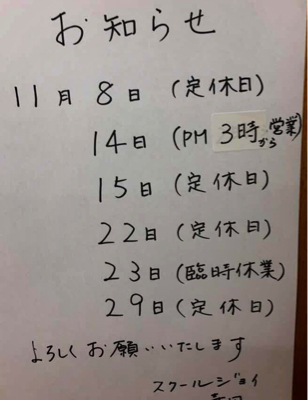 お知らせ
11月 8日 (定休日)
14日 (PM 3時から営業)
15日 (定休日)
22日 (定休日)
23日 (臨時休業)
29日 (定休日)
よろしくお願いいたします
スクールジョイ